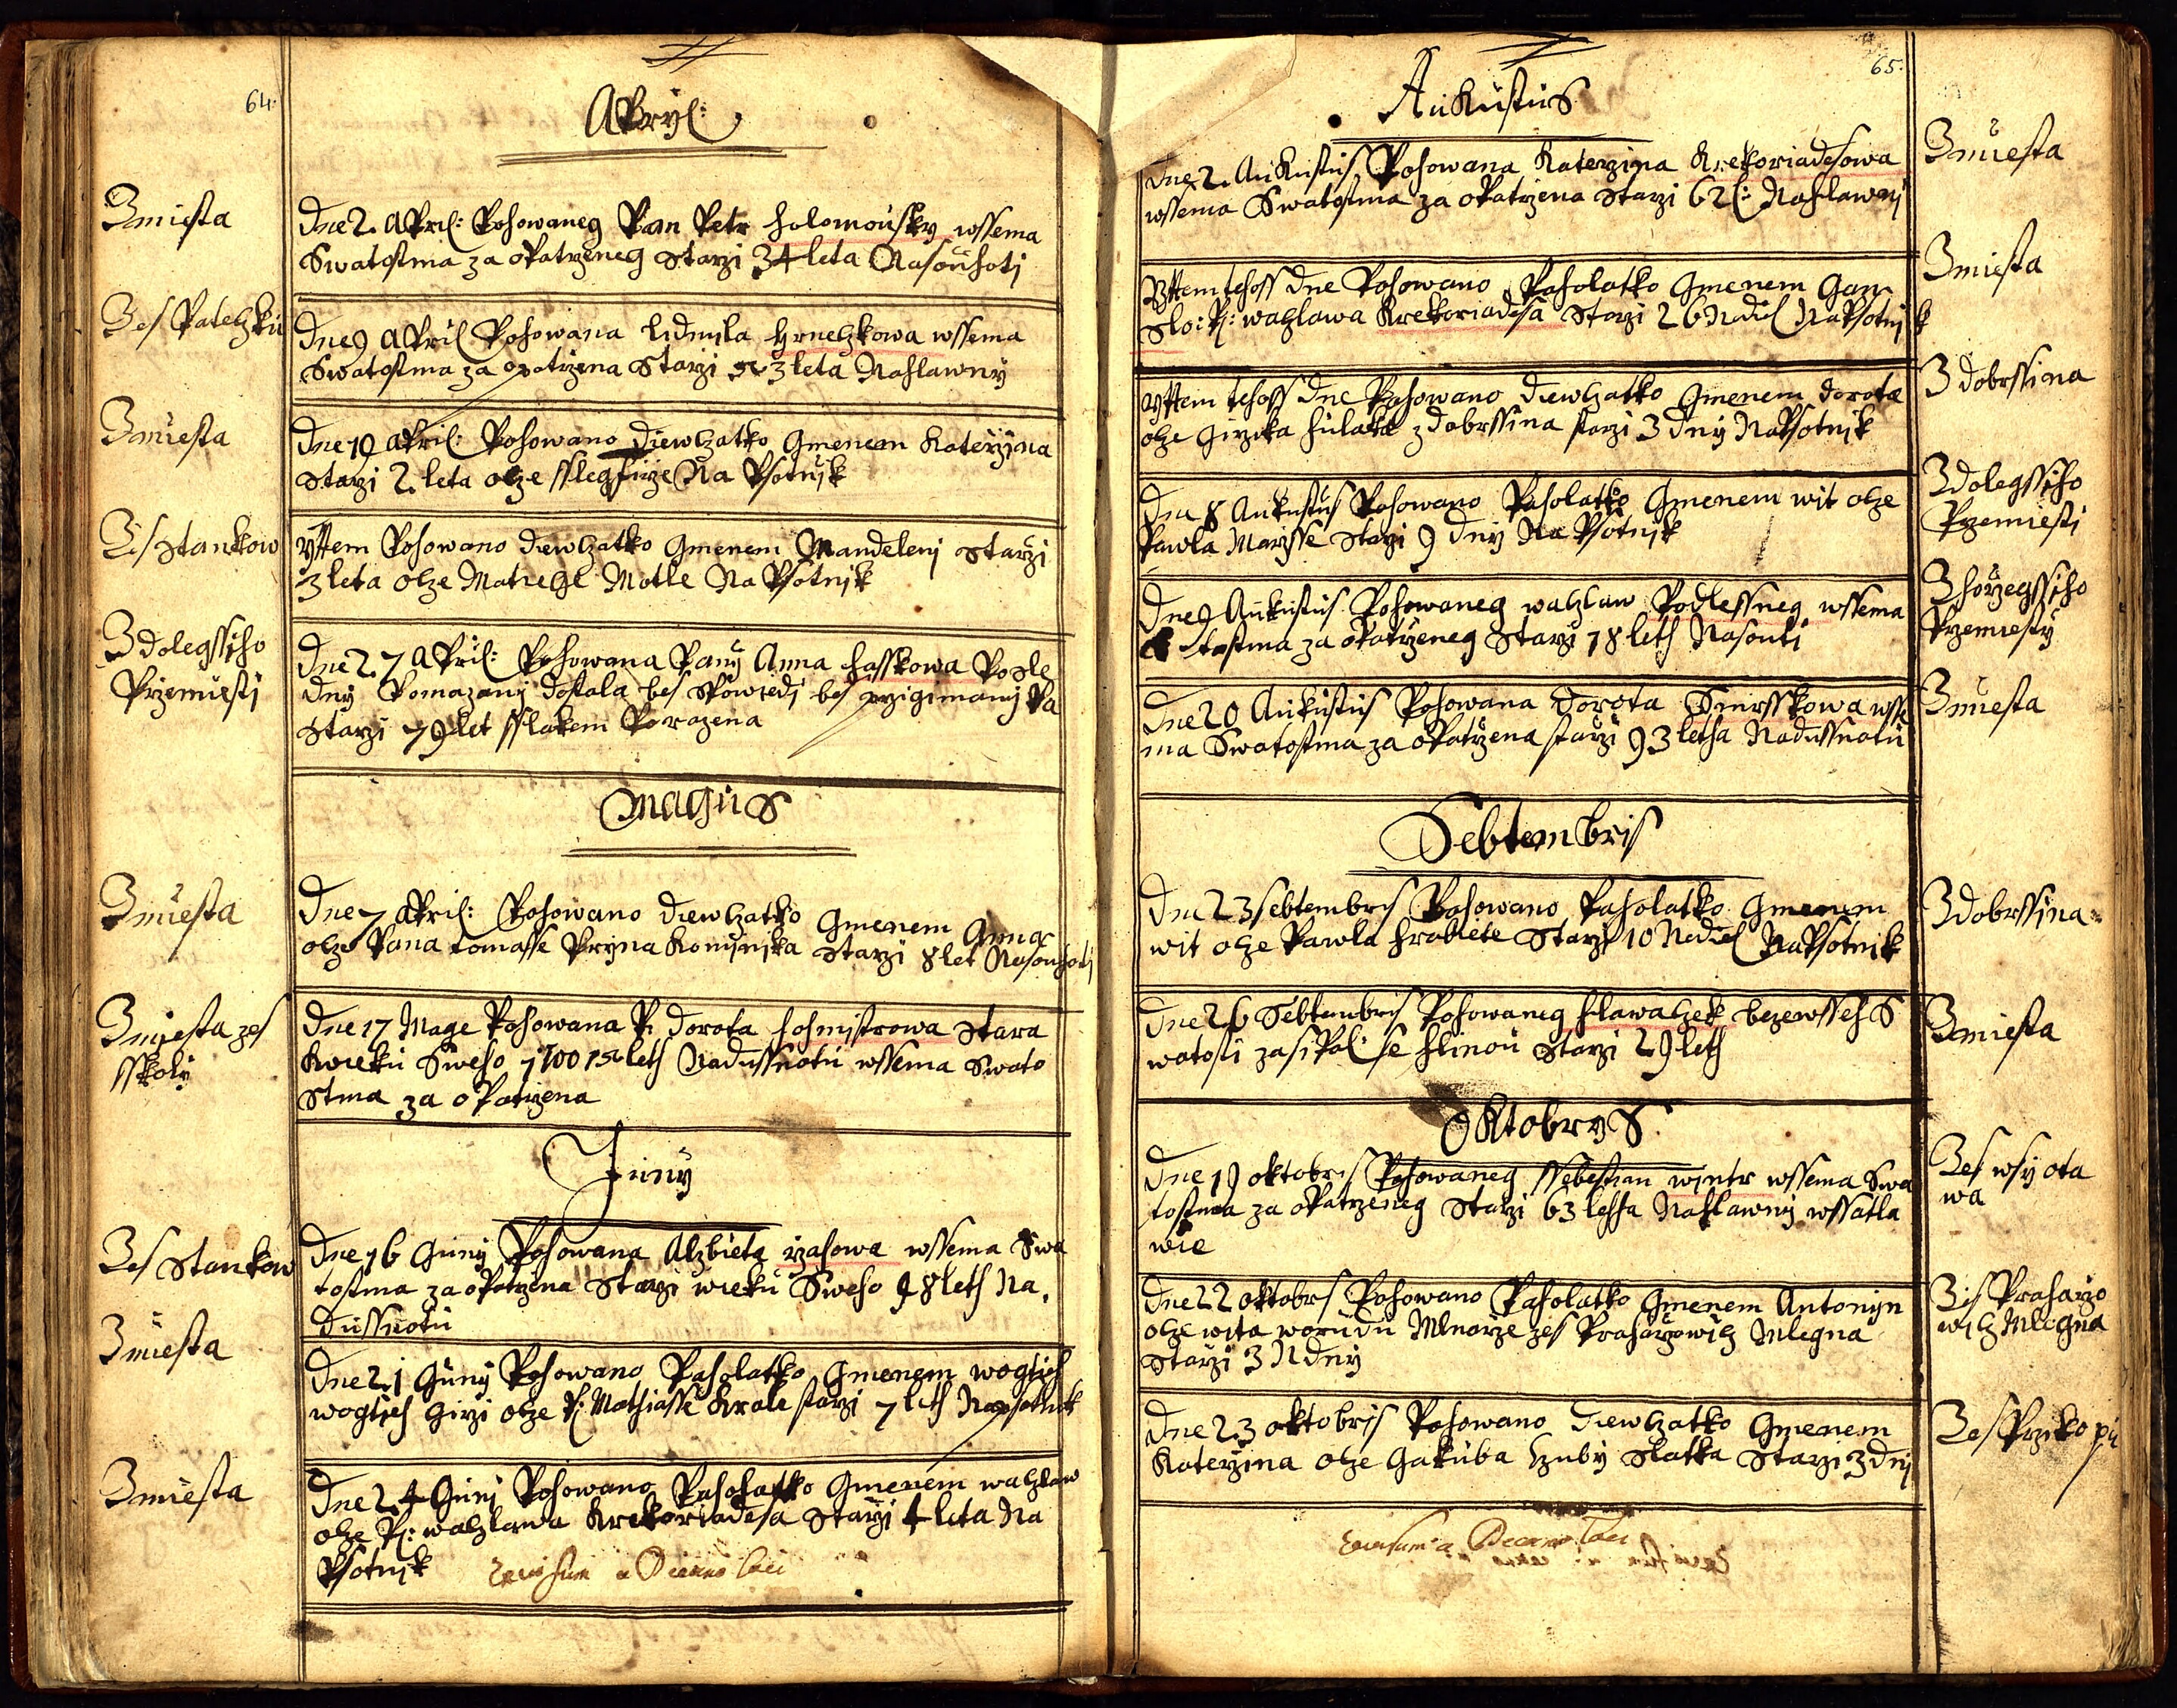 64.
Apryl:
Zmiesta
Dne 2. April: Pohowaneg Pan Petr holomousky wssema
Swatostma za opatrzeneg Starzi 34 leta Nasouhoti
Zes Patelzku
Dne 9 April Pohowana lidmila hrnelzkowa wssema
Swatostma za opatrzena Starzi 3 leta Nahlawny
Zmiesta
Dne 10 April: Pohowano Diewlzatko Gmenem Katerzina
Starzi 2. leta olze Na Psotnik
Zes Stankow
Yttem Pohowano diewlzatko Gmenem Mandelenj Starzi
3 leta olze Matiegle Motle Na Psotnik
Zdolegssiho
Przemiesti
Dne 27 April: Pohowana Panj Anna hasskowa Posle
dnÿ Pomazanj dostala bes spowiedi bes przigimanj Pa
Starzi 79 let sslakem Porazena
Magus
Zmiesta
Dne 7 April: Pohowano Diewlzatko Gmenem Anna
olze Pana tomasse Pryna Kominika Starzi 8 let Nasouhoti
Zmiesta zes
sskolÿ
Dne 17 Mage Pohowana P: dorota hofmistrowa Stara
Kwieku Sweho leth Nadussnotu wssema Swato
Stma za opatrzena
Junÿ
Zes Stankow
Dne 16 Gunÿ Pohowana Alzbieta rzasowa wssema Swa
tostma za opatrzena Starzi wieku Sweho 98 leth Na
dussnotu
Zmiesta
Dne 21 Gunÿ Pohowano Paholatko Gmenem wogtieh
wogtieh Girzi olze P: Mathiasse Krale starzi 7 leth Na psotnik
Zmiesta
Dne 24 Gunj Pohowano Paholatko Gmenem walzlaw
olze P: walzlawa Krekoriadesa Starzi 4 leta Na
Psotnik revisum a Decano loci
65.
Aukustus
Dne 2. Aukustus Pohowana Katerzina Krekoriadesowa
wssema Swatostma za opatrzena Starzi 62 l: Nahlawnj
Zmiesta
Yttem tehoss dne Pohowano Paholatko Gmenem Gan
Slo: P: walzlawa Krekoriadesa Starzi 26 Nediel NaPsotnik
Zmiesta
Yttem tehoss dne Pohowano diewlzatko Gmenem dorota
olze Girzika hulaka z dobrssina starzi 3 dnÿ NaPsotnik
Z dobrssina
Dne 8 Aukustus Pohowano Paholatko Gmenem wit olze
Pawla Marzsse Starzi 9 dnÿ Na Psotnik
Zdolegssiho
Przemiesti
Dne 9 Aukustus Pohowaneg walzlaw Podlessneg wssema
tostma za opatrzeneg Starzi 78 leth Nasouti
Zhorzegssiho
Przemiesty
Dne 20 Aukustus Pohowana Dorota Smrsskowa wsse
ma Swatostma za opatrzena starzi 93 letha Nadussnotu
Zmiesta
Sebtembris
Dne 23 sebtembris Pohowano Paholatko Gmenem
wit olze Pawla hrobiete Starzi 10 Nediel NaPsotnik
Zdobrssina
Dne 26 Sebtembris Pohowaneg hlawalzek bezewsseh S
watosti zasipal: se hlinou Starzi 29 leth
Zmiesta
Oktobrys
Dne 19 oktobris Pohowaneg Ssebestian wintr wssema Swa
tostma za opatrzeneg Starzi 63 letha Nahlawnÿ wssatla
wie
Zes wsÿ ota
wa
Dne 22 oktobrs Pohowano Paholatko Gmenem Antonijn
olze wita worudu Mlnarze zes Praharzowilz Mlegna
Starzi 3 N dnÿ
Zes Praharzo
wilz Mlegna
Dne 23 oktobris Pohowano Diewlzatko Gmenem
Katerzina olze Gakuba Hzubÿ Slatka Starzi 3 dnj
Zes Przikopu
revisum a Decano loci